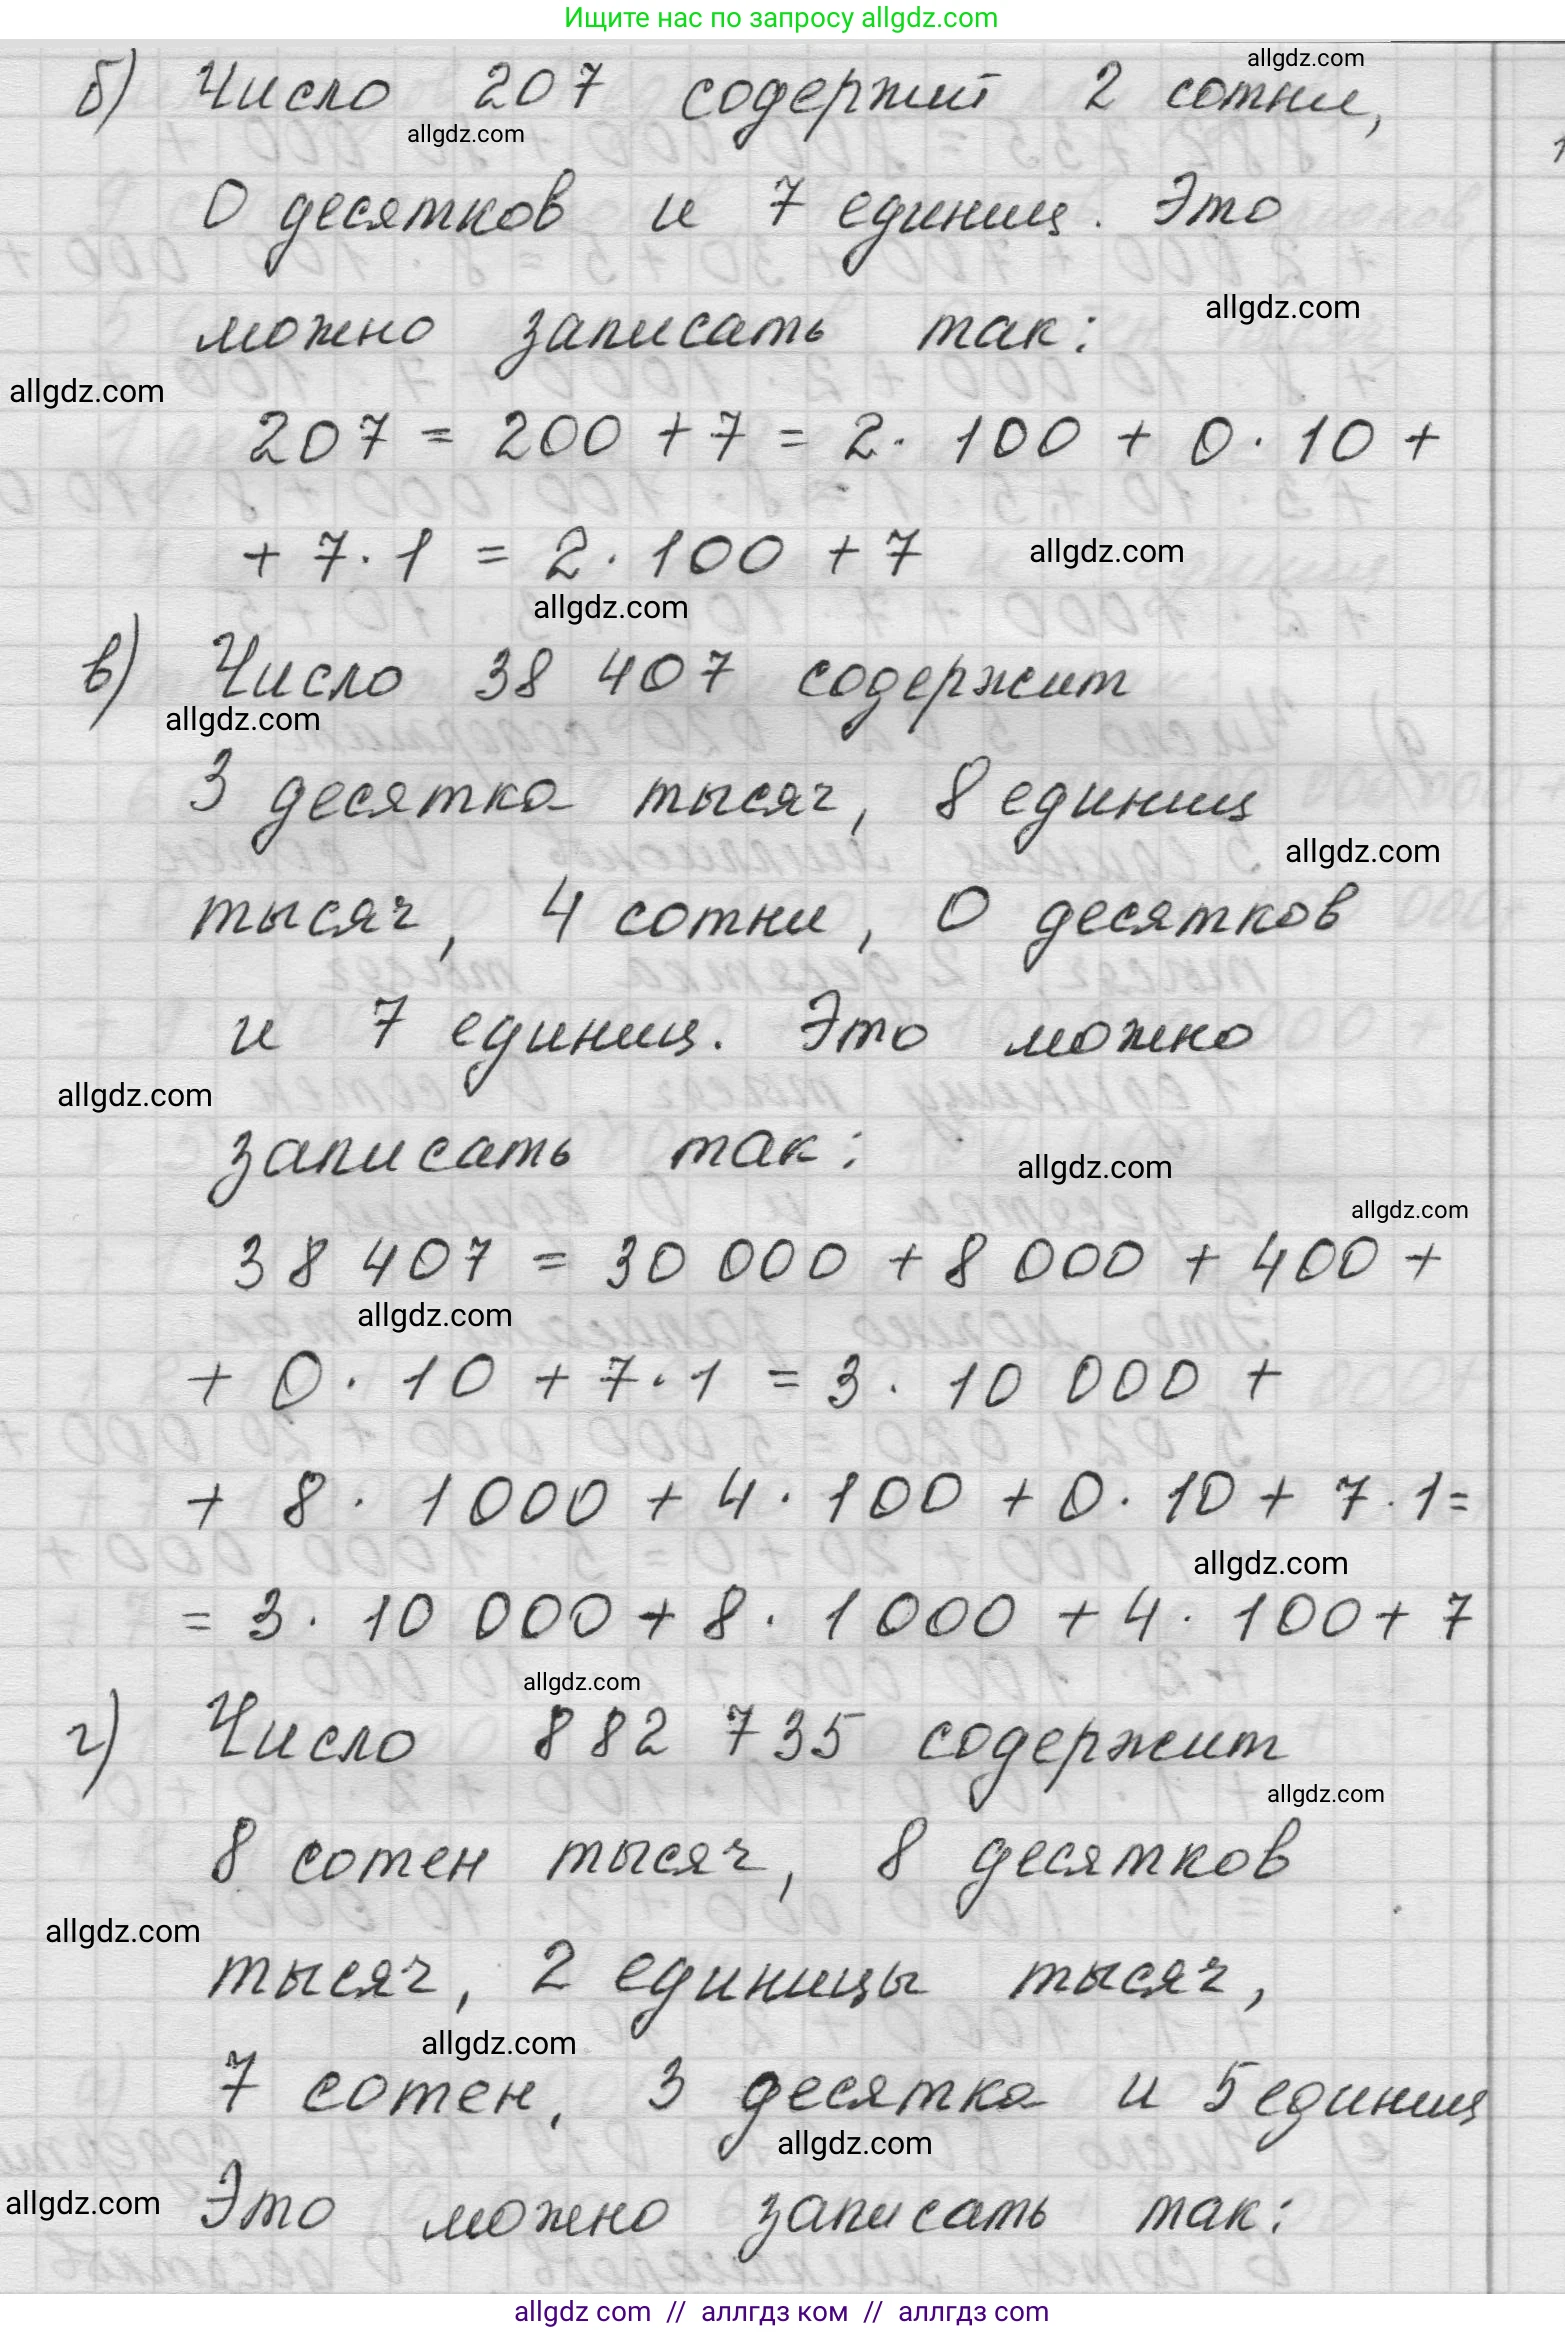 Ищите нас по запросу allgdz.com
allgdz.com
б) Число 207 содержит 2 сотни,
allgdz.com
0 десятков и 7 единиц. Это
allgdz.com
можно записать так:
allgdz.com
207 = 200 + 7 = 2 · 100 + 0 · 10 +
+ 7 · 1 = 2 · 100 + 7
allgdz.com
allgdz.com
в) Число 38 407 содержит
allgdz.com
3 десятка тысяч, 8 единиц
allgdz.com
тысяч, 4 сотни, 0 десятков
и 7 единиц. Это можно
allgdz.com
записать так:
allgdz.com
allgdz.com
38 407 = 30 000 + 8 000 + 400 +
allgdz.com
+ 0 · 10 + 7 · 1 = 3 · 10 000 +
+ 8 · 1000 + 4 · 100 + 0 · 10 + 7 · 1 =
allgdz.com
= 3 · 10 000 + 8 · 1000 + 4 · 100 + 7
allgdz.com
г) Число 882 735 содержит
allgdz.com
8 сотен тысяч, 8 десятков
allgdz.com
тысяч, 2 единицы тысяч,
allgdz.com
7 сотен, 3 десятка и 5 единиц
allgdz.com
allgdz.com
Это можно записать так:
allgdz com // аллгдз ком // аллгдз com